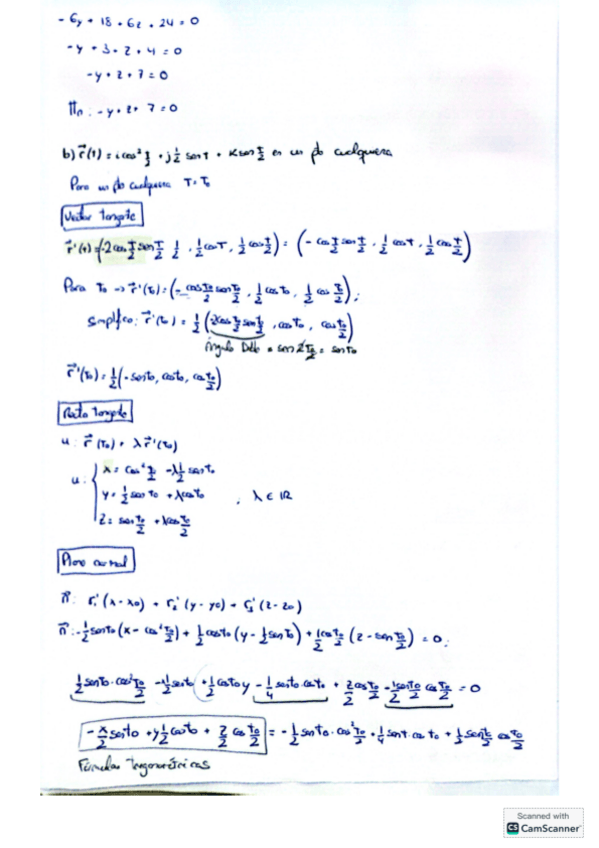 - 6y + 18 + 6z + 24 = 0
- y + 3 + z + 4 = 0
- y + z + 7 = 0
Πn : - y + z + 7 = 0
b) r⃗(t) = i cos² t/2 + j 1/2 sen t + k sen t/2 en un pto cualquiera
Para un pto cualquiera t = to
Vector tangente
r⃗'(t) = (-2 cos t/2 sen t/2 · 1/2, 1/2 cos t, 1/2 cos t/2) = (- cos t/2 sen t/2, 1/2 cos t, 1/2 cos t/2)
Para to → r⃗'(to) = (- cos to/2 sen to/2, 1/2 cos to, 1/2 cos to/2);
Simplifico: r⃗'(to) = 1/2 (-2 cos t/2 sen t/2, cos to, cos to/2)
Ángulo Doble = sen 2 to/2 = sen to
r⃗'(to) = 1/2 (- sen to, cos to, cos to/2)
Recta tangente
u : r⃗(to) + λ r⃗'(to)
x = cos² to/2 - λ 1/2 sen to
u : y = 1/2 sen to + λ cos to , λ ∈ ℝ
z = sen to/2 + λ cos to/2
Plano normal
n⃗ : r₁'(x - xo) + r₂'(y - yo) + r₃'(z - zo)
n⃗ : - 1/2 sen to (x - cos² to/2) + 1/2 cos to (y - 1/2 sen to) + 1/2 cos to/2 (z - sen to/2) = 0;
1/2 sen to · cos² to/2 - x 1/2 sen to + 1/2 cos to y - 1/4 sen to · cos to + z/2 cos to/2 - 1/2 sen to/2 cos to/2 = 0
- x/2 sen to + y 1/2 cos to + z/2 cos to/2 = - 1/2 sen to · cos² to/2 + 1/4 sen t · cos to + 1/2 sen to/2 cos to/2
Fórmulas trigonométricas
Scanned with
CS CamScanner